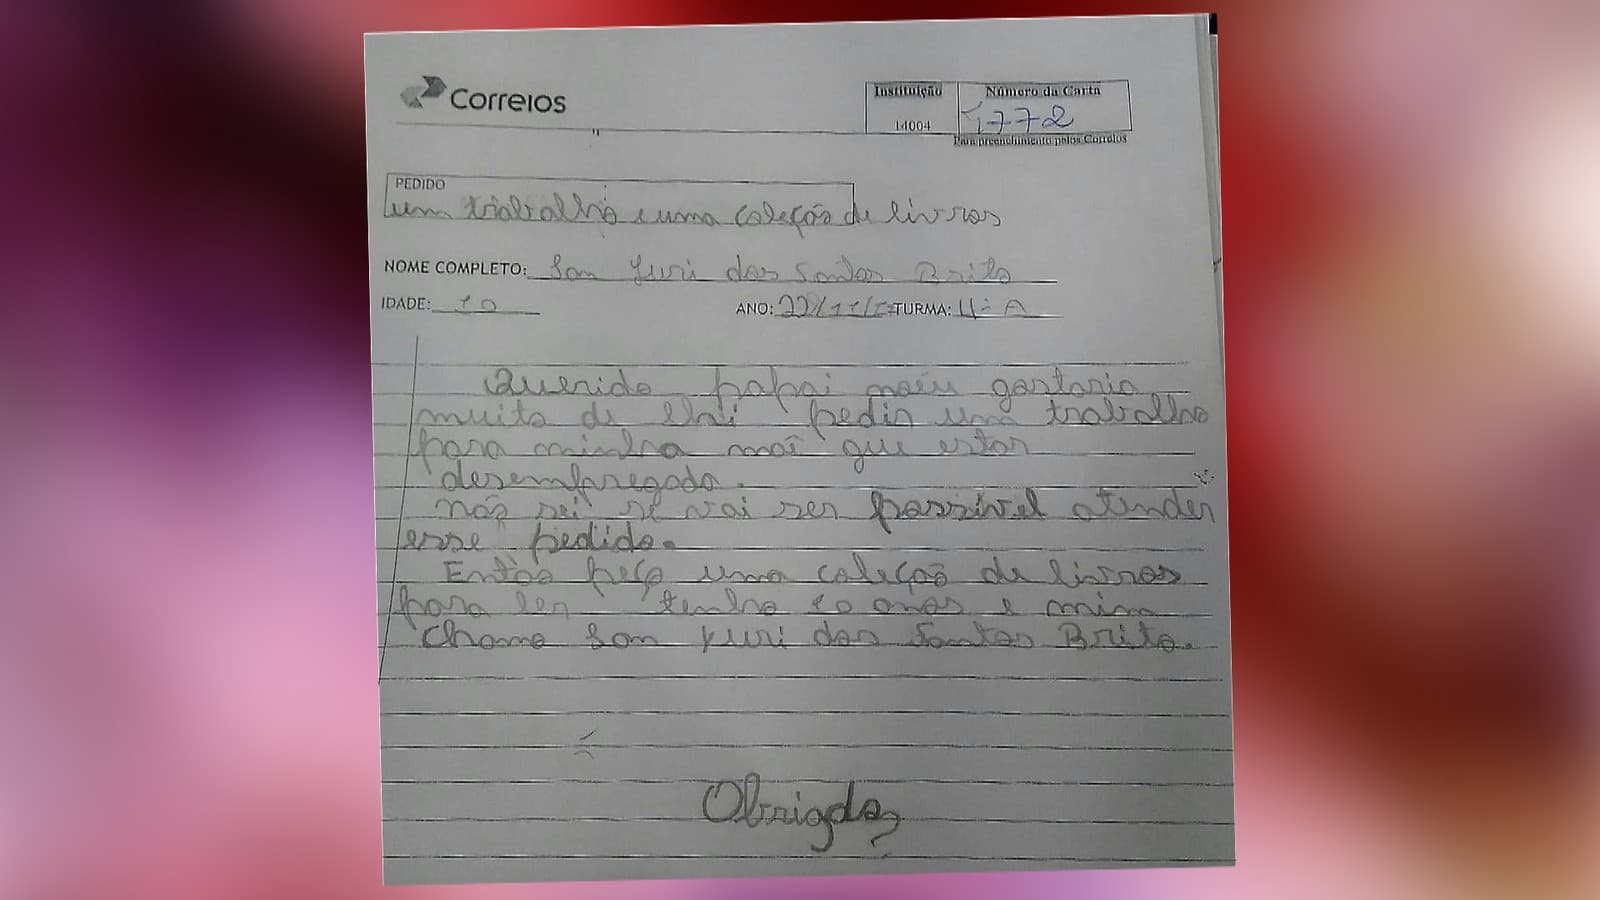 Correios
Instituição Número da Carta
14004 1772
Para preenchimento pelos Correios
PEDIDO
um trabalho e uma coleção de livros
NOME COMPLETO: San Yuri dos Santos Brito
IDADE: 10 ANO: 22/11/ TURMA: 4º A
Querido papai noeu gostaria
muito de lhi pedir um trabalho
para minha mãi que estar
desempregada.
não sei se vai ser possível atender
esse pedido.
Então peço uma coleção de livros
para ler tenho 10 anos e mim
chamo San Yuri dos Santos Brito.
Obrigado